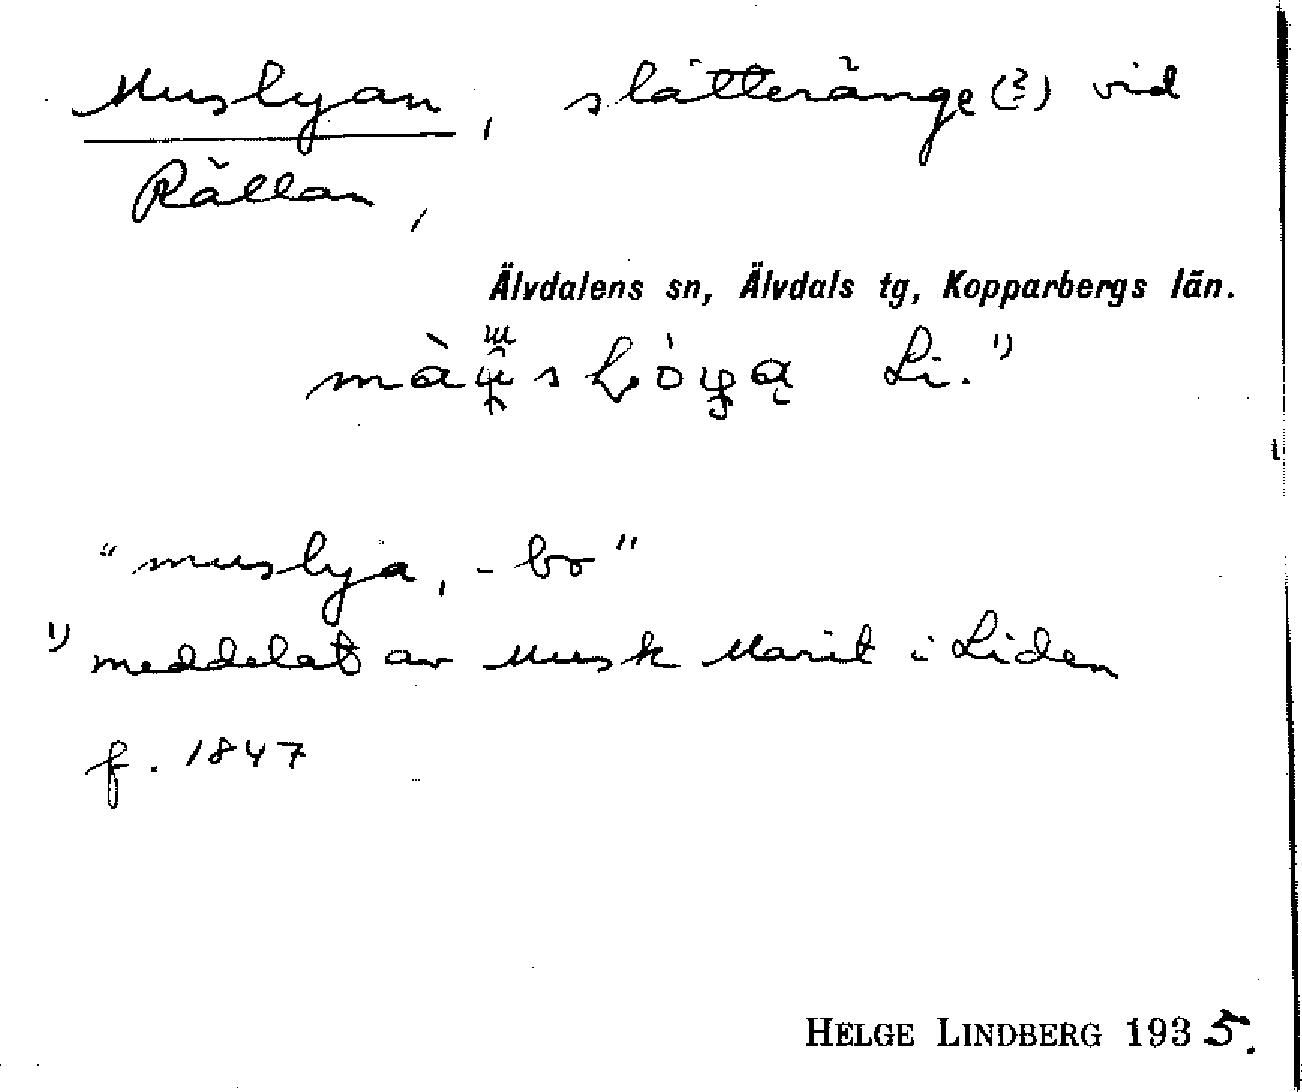 Muslyan, slåtteränge (?) vid
Rällan,
Älvdalens sn, Älvdals tg, Kopparbergs län.
Li. 1)
"muslya, - bo"
1) meddelat av Musk Marit i Liden
f. 1847
HELGE LINDBERG 1935.